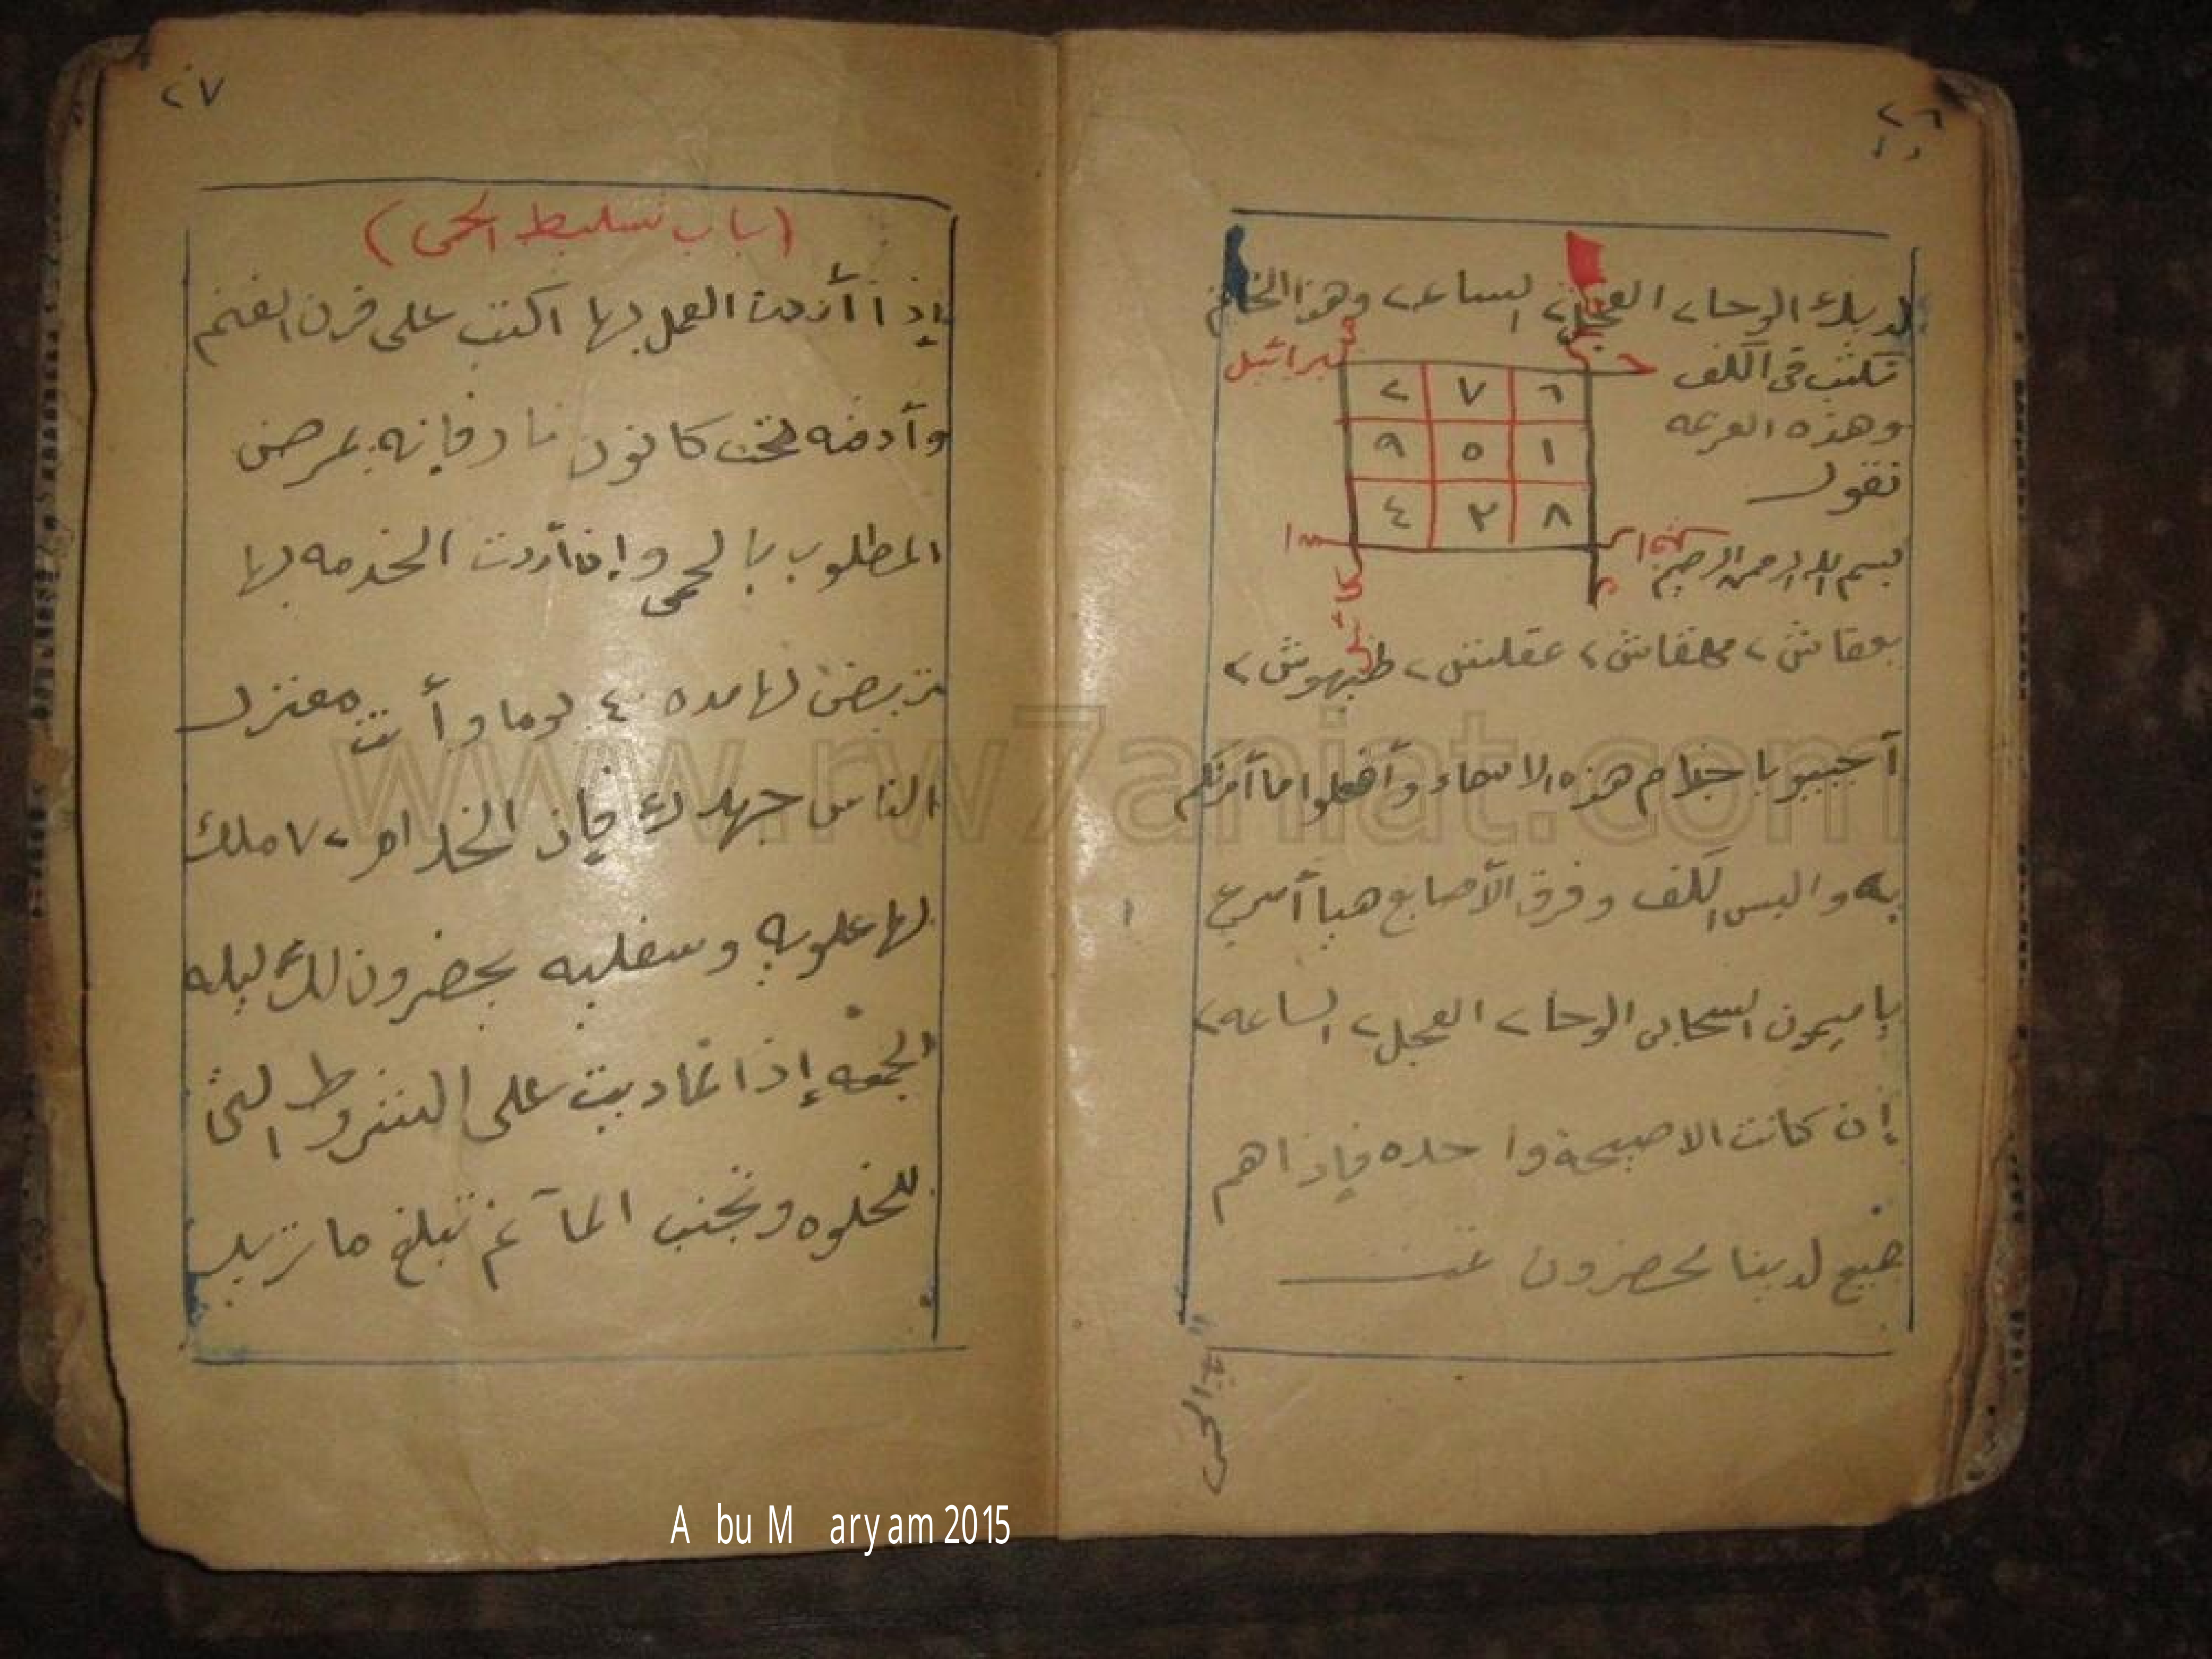 ٢٦
لديك الوحا٢ العجل٢ الساعه٢ وهذا الخاتم
تكتب في الكف
وهذه العزيمه
تقول
جبرائيل
٢ ٧ ٦
٩ ٥ ١
٤ ٣ ٨
بسم الله الرحمن الرحيم
بعقاش٢ مهقاش٢ عقلش٢ طيهوش٢
أجيبو يا خدام هذه الاسماء وأفعلوا ما آمرتكم
به والبس الكف وفرق الأصابع هيا أسرع
يا ميمون السحابى الوحا٢ العجل٢ الساعه٢
إن كانت الا صيحة واحده فإذا هم
جميع لدينا محضرون تمت
الحمى
٢٧
(باب تسليط الحمى)
إذا أردت العمل بها اكتب على قرن الغنم
وآدفنه تحت كانون نار فإنه يمرض
المطلوب بالحمى وإن أردت الخدمه لها
تريض لها مده ٤٠ يوما وأنت معتزل
الناس جهدك فإن الخدام ٧٠ ملك
لها علويه وسفليه يحضرون لك ليله
الجمعه إذا تماديت على الشروط التى
للخلوه وتجنب المآثم تبلغ ما تريد
www.rw7aniat.com
Abu Maryam 2015